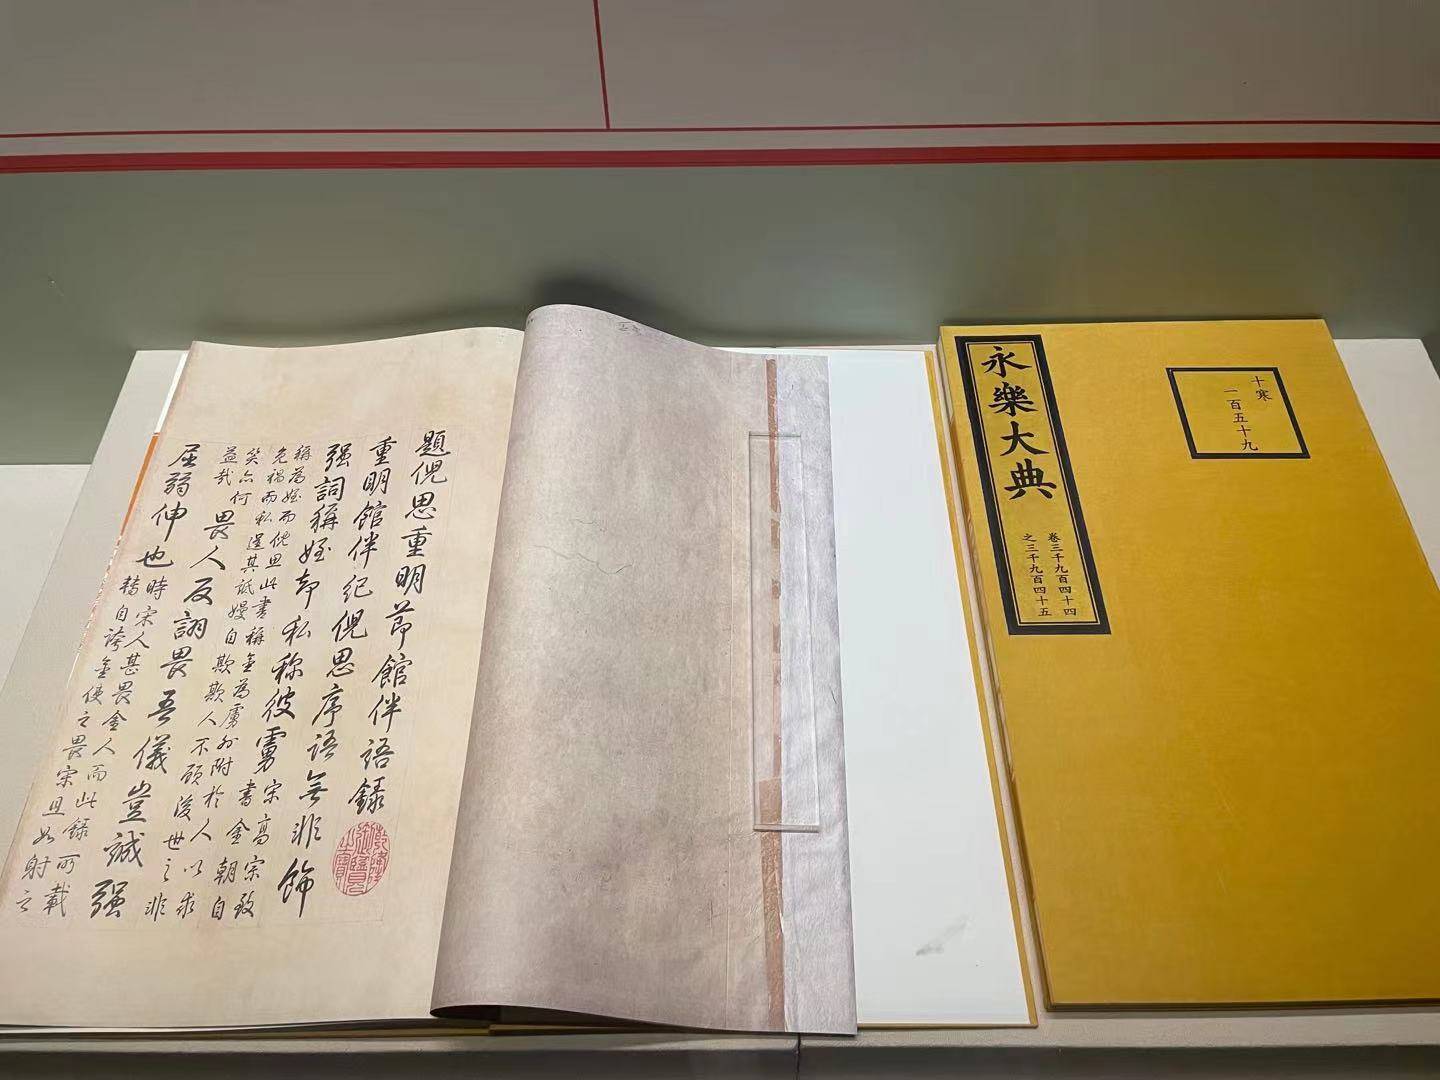 題倪思重明節館伴語錄
重明館伴紀倪思序語無非飾
强詞稱姪却私称彼虜
宋高宗致
書金朝自
稱為姪而倪思此書稱金為虜外附於人以求
免禍而私逞其詆嫚自欺欺人不顧後世之非
笑亦何
益哉
畏人反詡畏吾儀豈誠强
屈弱伸也
時宋人甚畏金人而此錄所載
轉自誇金使之畏宋且如射之
乾隆御覽之寶
永樂大典
卷三千九百四十四
之三千九百四十五
十寒
一百五十九